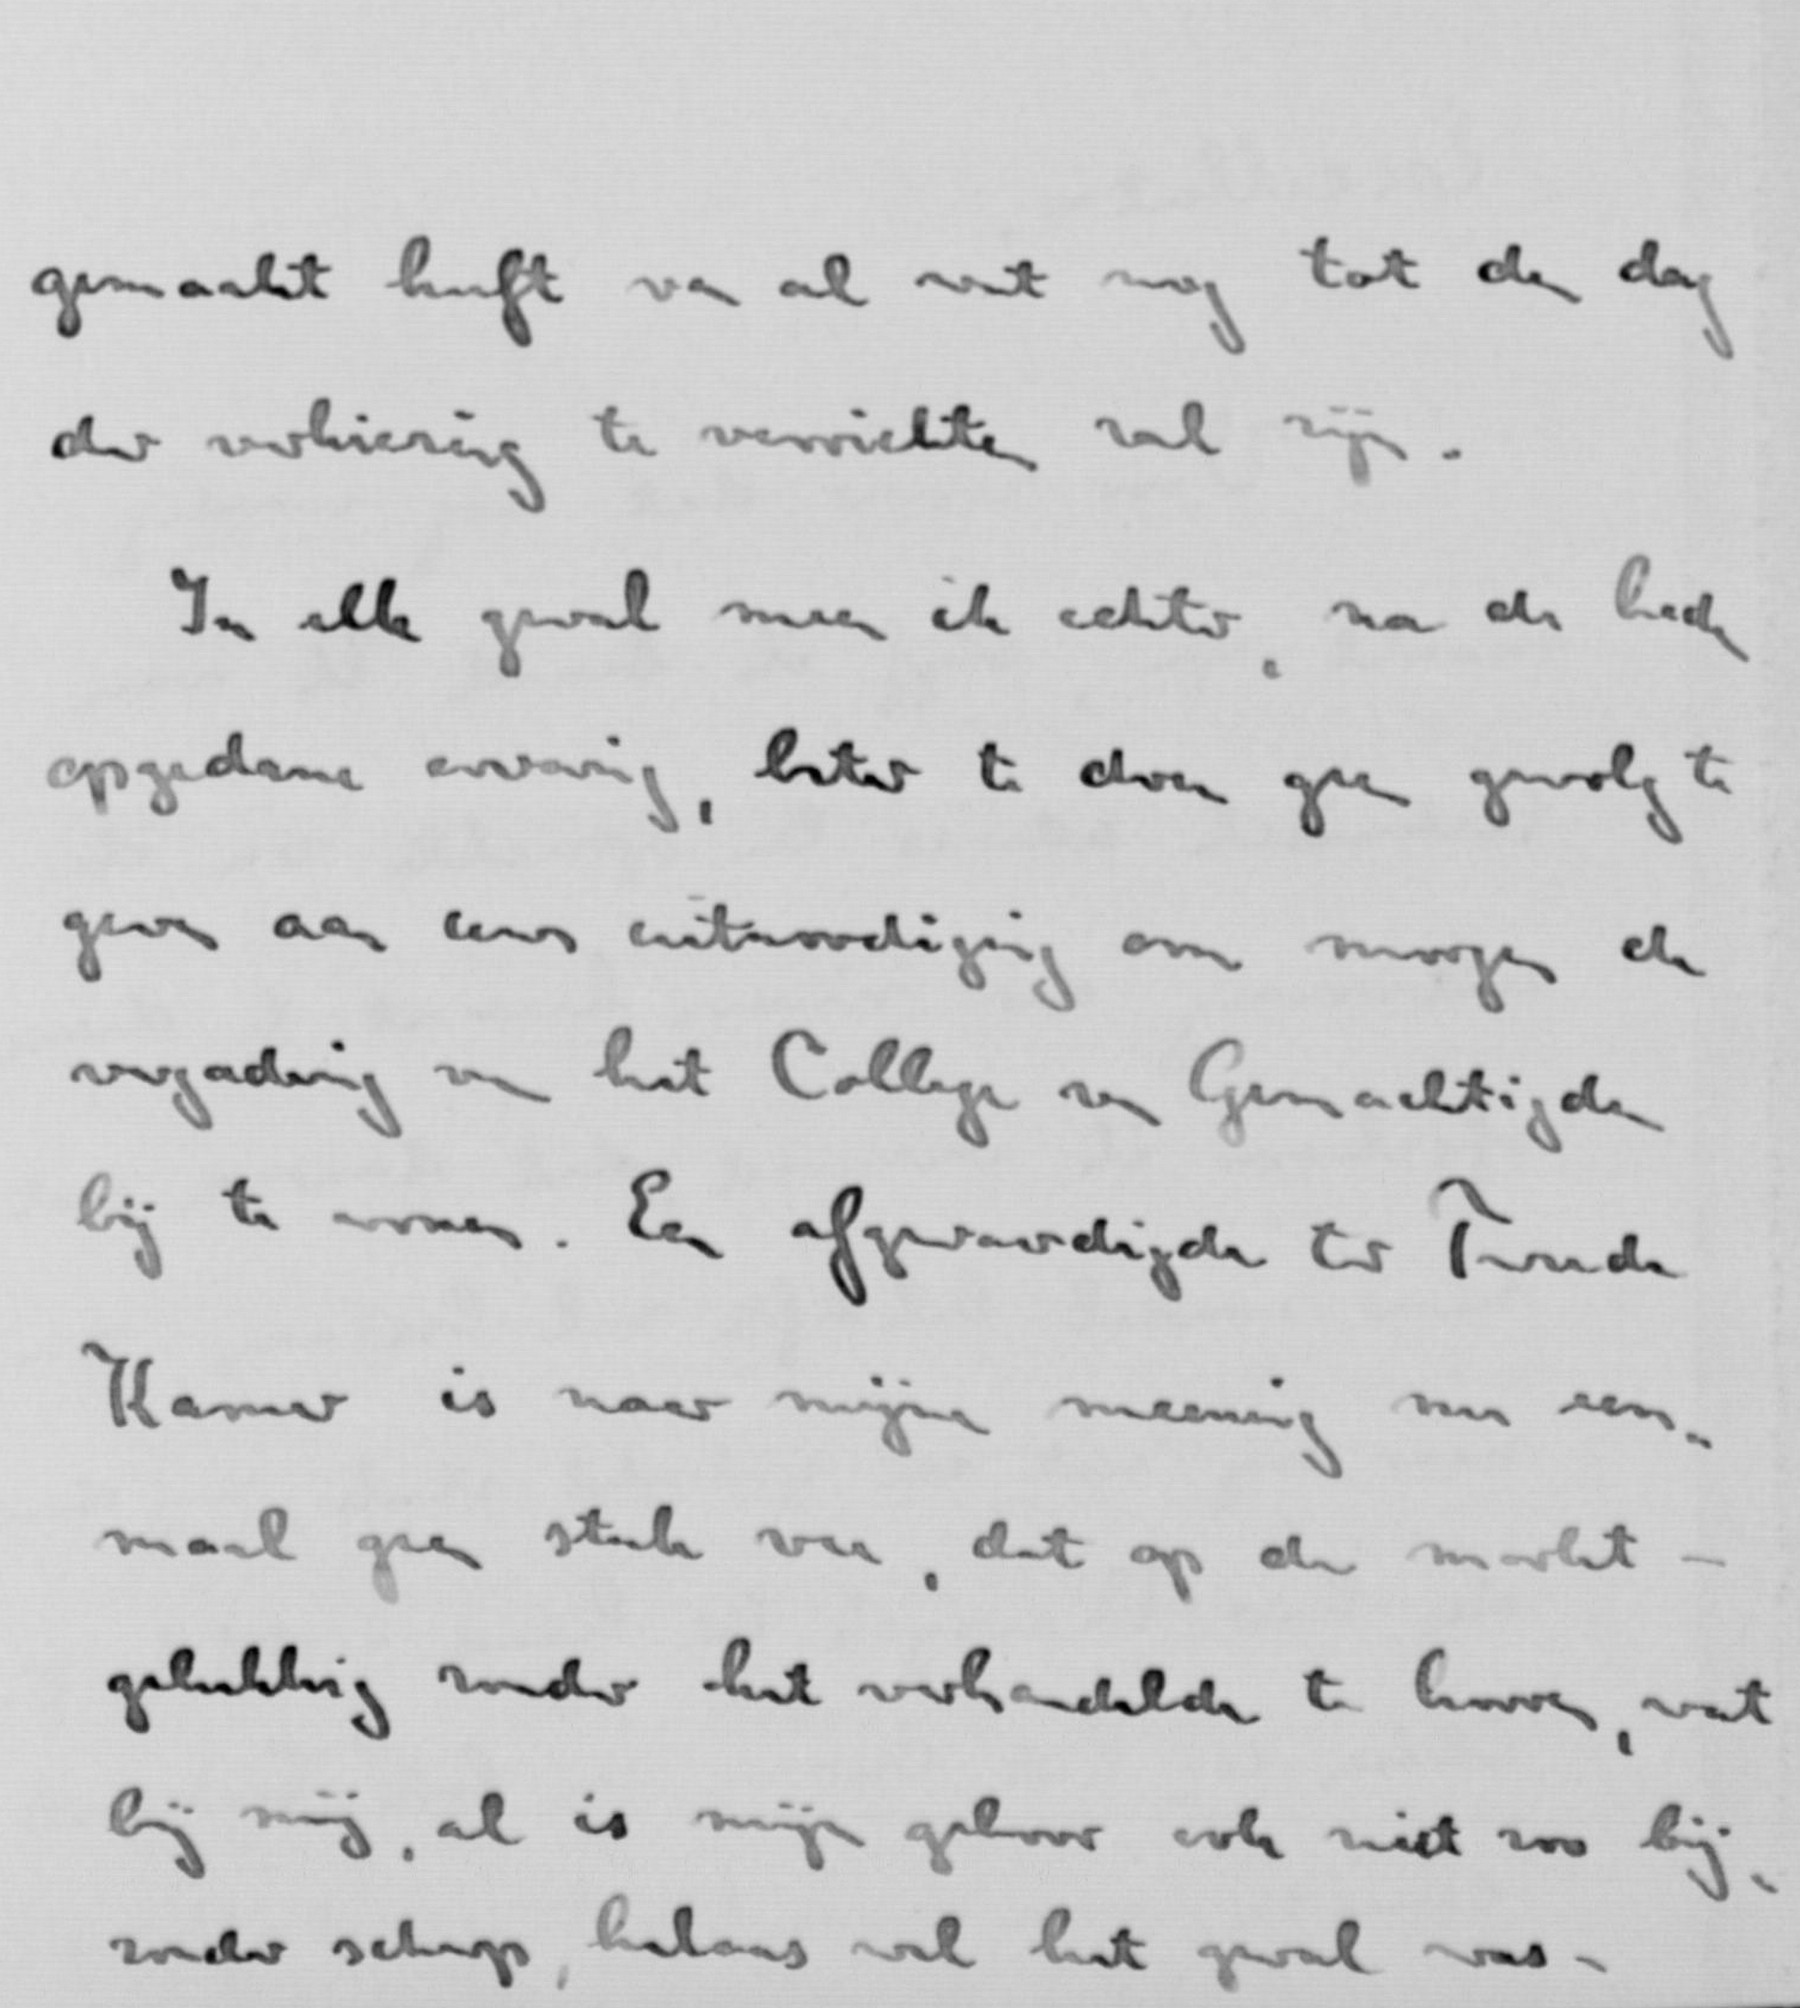 gemaakt heeft van al wat nog tot den dag
der verkiezing te verrichten zal zijn.
In elk geval meen ik echter, na de heden
opgedane ervaring, beter te doen geen gevolg te
geven aan uws uitnoodiging om morgen de
vergadering van het College van Gemachtigden
bij te wonen. Een afgevaardigde ter Tweede
Kamer is naar mijne meening nu een-
maal geen stuk vee, dat op de markt –
gelukkig zonder het verhandelde te hooren, wat
bij mij, al is mijn gehoor ook niet zoo bij-
zonder scherp, helaas wel het geval was –